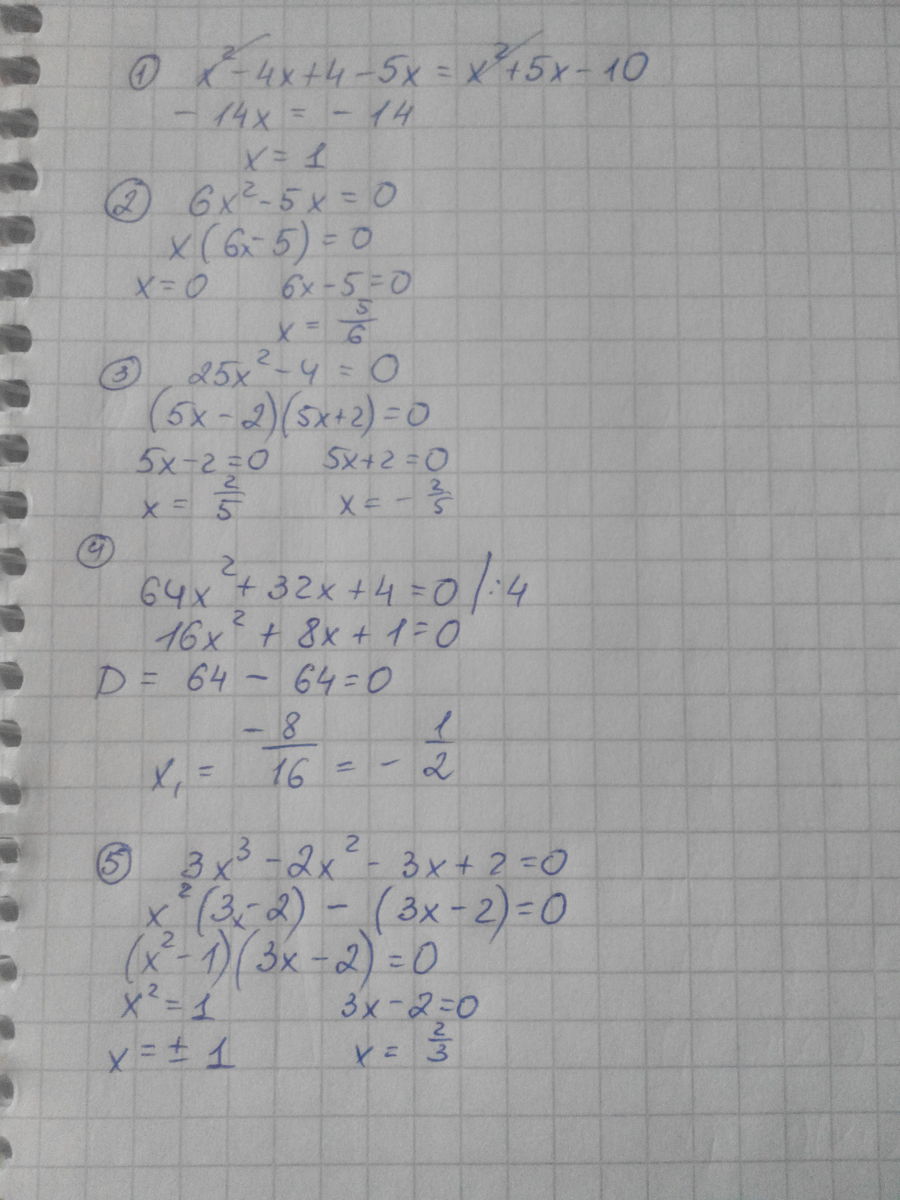 ① x² - 4x + 4 - 5x = x² + 5x - 10
- 14x = - 14
x = 1
② 6x² - 5x = 0
x (6x - 5) = 0
x = 0 6x - 5 = 0
x = 5/6
③ 25x² - 4 = 0
(5x - 2)(5x + 2) = 0
5x - 2 = 0 5x + 2 = 0
x = 2/5 x = - 2/5
④
64x² + 32x + 4 = 0 / : 4
16x² + 8x + 1 = 0
D = 64 - 64 = 0
x₁ = -8/16 = - 1/2
⑤ 3x³ - 2x² - 3x + 2 = 0
x² (3x - 2) - (3x - 2) = 0
(x² - 1)(3x - 2) = 0
x² = 1 3x - 2 = 0
x = ± 1 x = 2/3